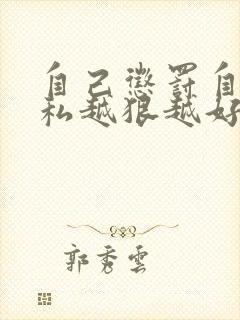 自己懲罰自
私越狠越好
郭秀雲